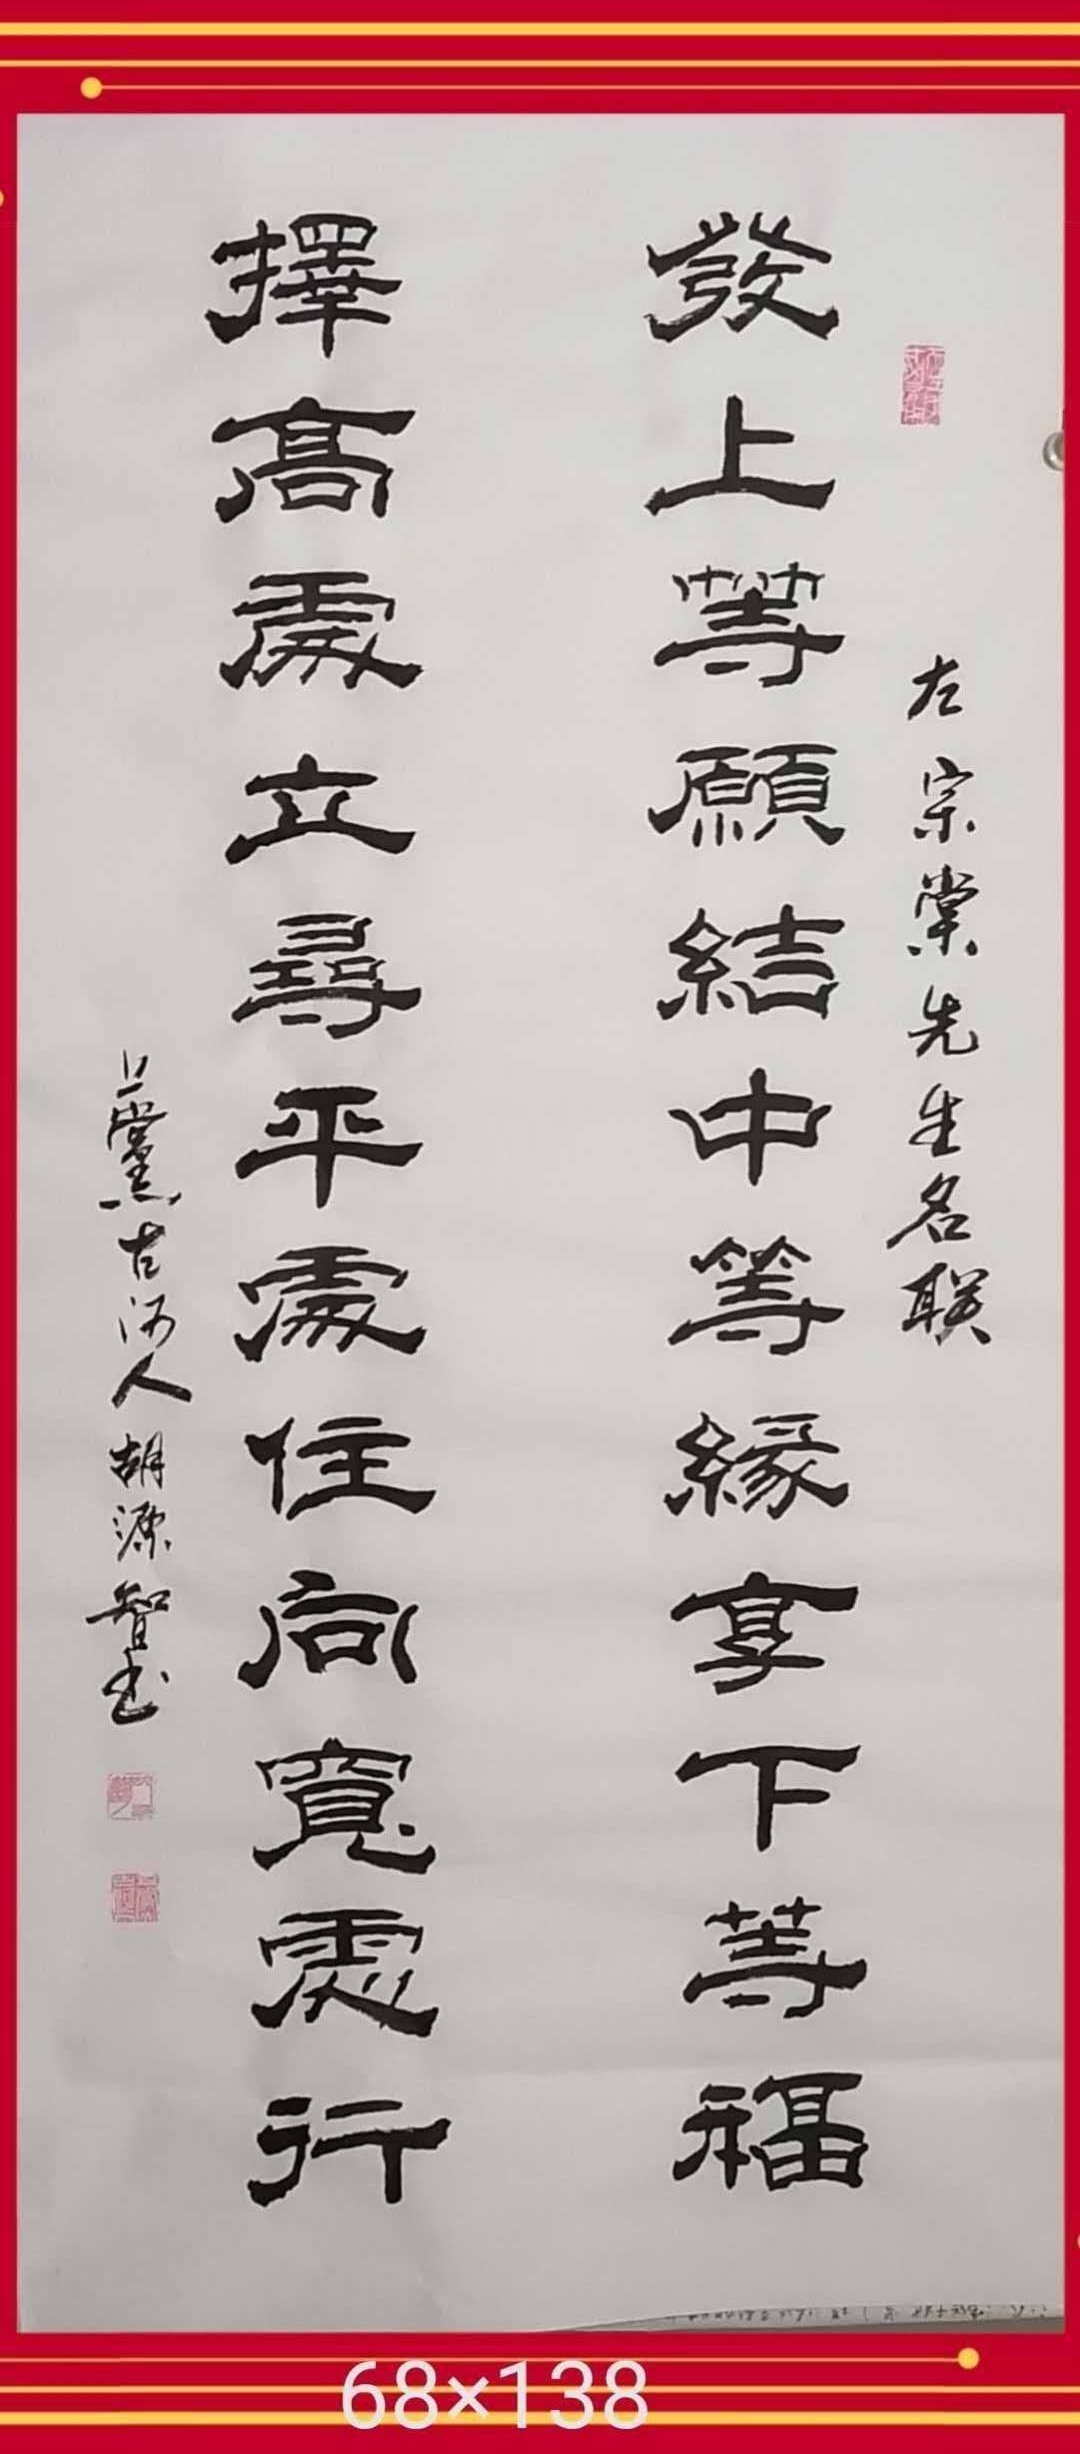 左宗棠先生名联
發上等願結中等緣享下等福
擇高處立尋平處住向寬處行
上黨古河人胡源智书
68×138